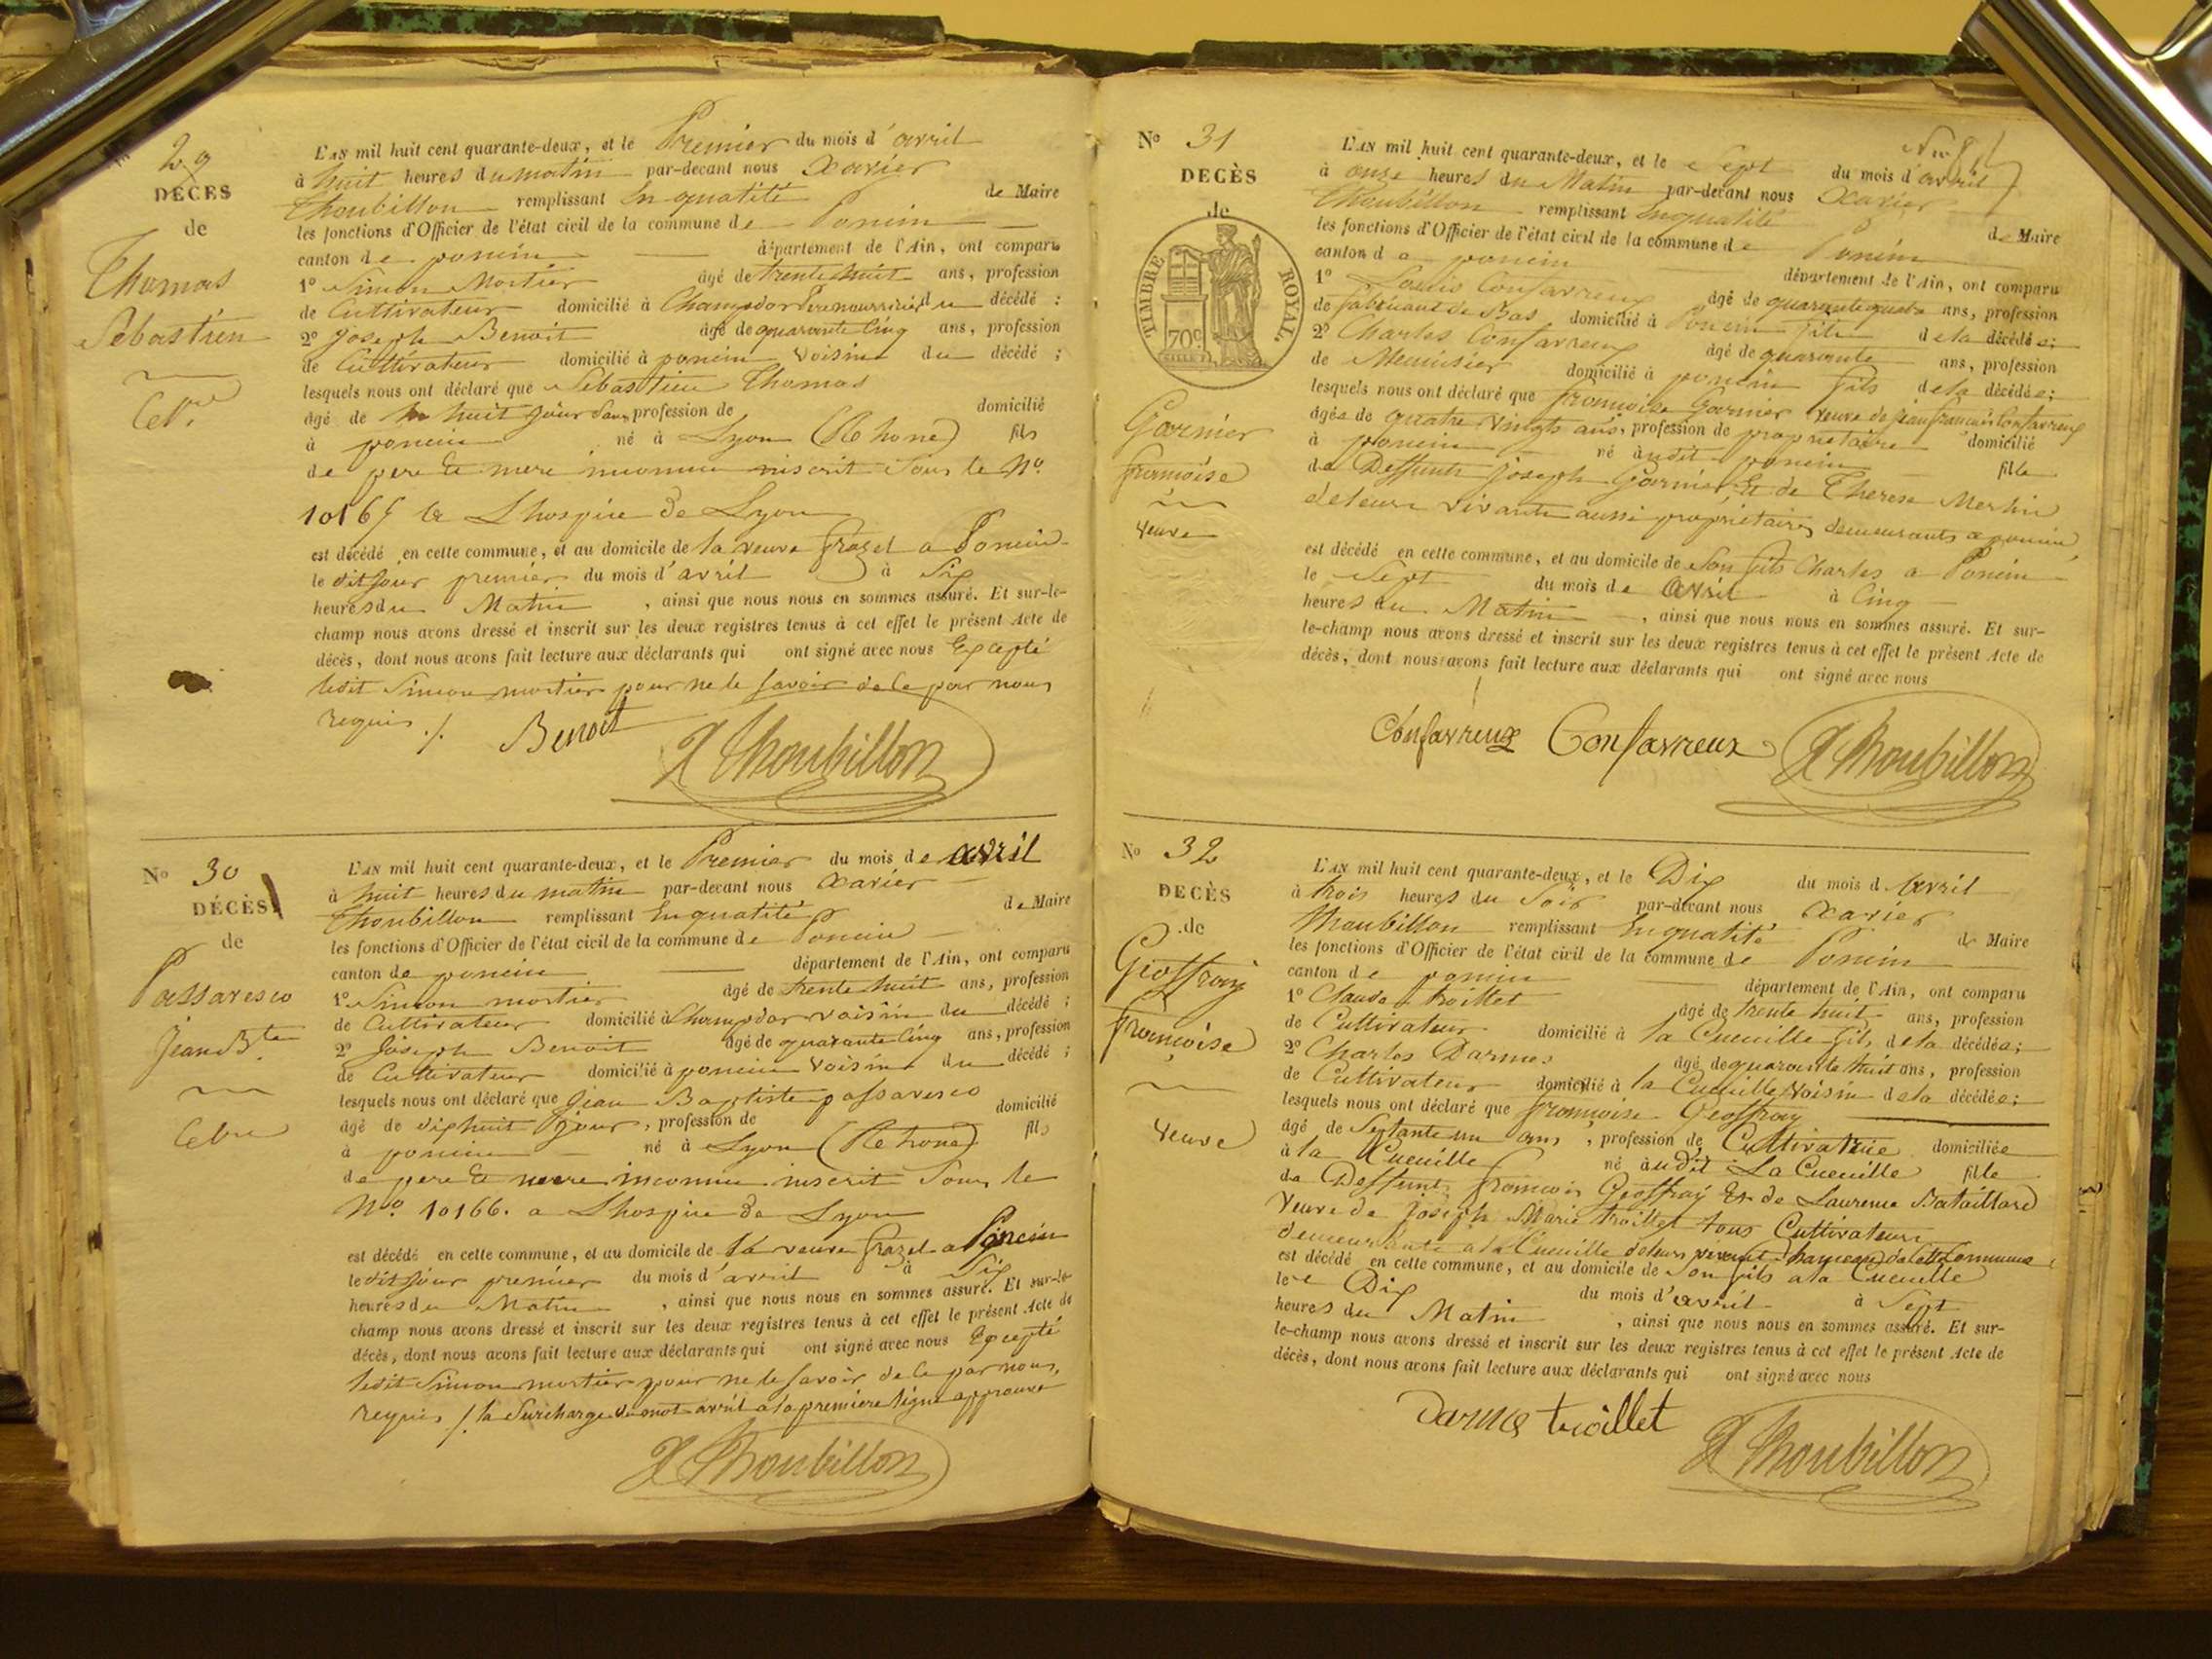 29
DÉCÈS
de
Thomas
Sebastien
Celre
L'AN mil huit cent quarante-deux, et le Premier du mois d'avril
à huit heures du matin par-devant nous Xavier
Thoubillon remplissant En qualité de Maire
les fonctions d'Officier de l'état civil de la commune de Poncin
canton de poncin département de l'Ain, ont comparu
1º Simon Mortier âgé de trente huit ans, profession
de Cultivateur domicilié à Champdor Perenourricier du décédé ;
2º Joseph Benoit âgé de quarante Cinq ans, profession
de Cultivateur domicilié à poncin voisin du décédé ;
lesquels nous ont déclaré que Sébastien Thomas
âgé de huit jours profession de domicilié
à poncin né à Lyon (Rhone) fils
de pere et mere inconnu inscrit Sous le Nº
10165 a L'hospice de Lyon
est décédé en cette commune, et au domicile de la veuve frazel a Poncin
le dit jour premier du mois d'avril à Six
heures du Matin , ainsi que nous nous en sommes assuré. Et sur-le-
champ nous avons dressé et inscrit sur les deux registres tenus à cet effet le présent Acte de
décès, dont nous avons fait lecture aux déclarants qui ont signé avec nous Excepté
ledit Simon mortier pour ne le savoir de ce par nous
requis ./. Benoit X Thoubillon
Nº 30
DÉCÈS
de
Passaresco
jean Bte
Celre
L'AN mil huit cent quarante-deux, et le Premier du mois de avril
à huit heures du matin par-devant nous Xavier
Thoubillon remplissant En qualité de Maire
les fonctions d'Officier de l'état civil de la commune de Poncin
canton de poncin département de l'Ain, ont comparu
1º Simon mortier âgé de trente huit ans, profession
de Cultivateur domicilié à Champdor voisin du décédé ;
2º Joseph Benoit âgé de quarante Cinq ans, profession
de Cultivateur domicilié à poncin Voisin du décédé ;
lesquels nous ont déclaré que Jean Baptiste passaresco
âgé de dix huit jour, profession de domicilié
à poncin né à Lyon (Rhone) fils
de pere et mere inconnu inscrit Sous le
Nº 10166. a L'hospice de Lyon
est décédé en cette commune, et au domicile de la veuve frazel a Poncin
le dit jour premier du mois d'avril à Six
heures du Matin , ainsi que nous nous en sommes assuré. Et sur-le-
champ nous avons dressé et inscrit sur les deux registres tenus à cet effet le présent Acte de
décès, dont nous avons fait lecture aux déclarants qui ont signé avec nous Excepté
ledit Simon mortier pour ne le savoir de ce par nous
requis ./. la Surcharge du mot avril a la premiere ligne approuvé
X Thoubillon
Nº 31
DÉCÈS
de
TIMBRE ROYAL
70c
Garnier
françoise
veuve
L'AN mil huit cent quarante-deux, et le Sept du mois d'avril
à onze heures du Matin par-devant nous Xavier
Thoubillon remplissant En qualité de Maire
les fonctions d'Officier de l'état civil de la commune de Poncin
canton de poncin département de l'Ain, ont comparu
1º Louis Confavreux âgé de quarante quatre ans, profession
de fabricant de Bas domicilié à Poncin fils de la décédée;
2º Charles Confavreux âgé de quarante ans, profession
de Menuisier domicilié à poncin fils de la décédée;
lesquels nous ont déclaré que françoise Garnier veuve de jean françois Confavreux
âgée de quatre vingts ans, profession de propriétaire domicilié
à poncin né audit poncin fille
de Deffunts joseph Garnier Et de Therese Merlin
de leur vivants aussi propriétaires demeurants a poncin,
est décédé en cette commune, et au domicile de Son fils Charles a Poncin
le Sept du mois de avril à Cinq
heures du Matin , ainsi que nous nous en sommes assuré. Et sur-
le-champ nous avons dressé et inscrit sur les deux registres tenus à cet effet le présent Acte de
décès, dont nous avons fait lecture aux déclarants qui ont signé avec nous
Confavreux Confavreux X Thoubillon
Nº 32
DÉCÈS
de
Geoffray
Françoise
Veuve
L'AN mil huit cent quarante-deux, et le Dix du mois d Avril
à trois heures du Soir par-devant nous Xavier
Thoubillon remplissant En qualité de Maire
les fonctions d'Officier de l'état civil de la commune de Poncin
canton de poncin département de l'Ain, ont comparu
1º Claude troillet âgé de trente huit ans, profession
de Cultivateur domicilié à la Cueuille fils de la décédée;
2º Charles Darmes âgé de quarante huit ans, profession
de Cultivateur domicilié à la Cueuille Voisin de la décédée;
lesquels nous ont déclaré que françoise Geoffray
âgé de Septante un ans, profession de Cultivatrice domiciliée
à la Cueuille né audit La Cueuille fille
de Deffunts françois Geoffray Et de Laurence Bataillard
Veuve de joseph Marie troillet tous Cultivateurs
demeurants a la Cueuille de leurs vivant hameau de cette Commune,
est décédé en cette commune, et au domicile de Son fils a la Cueuille
le Dix du mois d'avril à Sept
heures du Matin , ainsi que nous nous en sommes assuré. Et sur-
le-champ nous avons dressé et inscrit sur les deux registres tenus à cet effet le présent Acte de
décès, dont nous avons fait lecture aux déclarants qui ont signé avec nous
Darmes troillet X Thoubillon